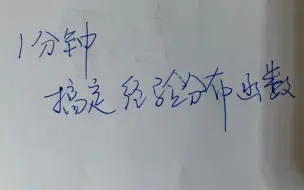 1分钟
搞定经验分布函数